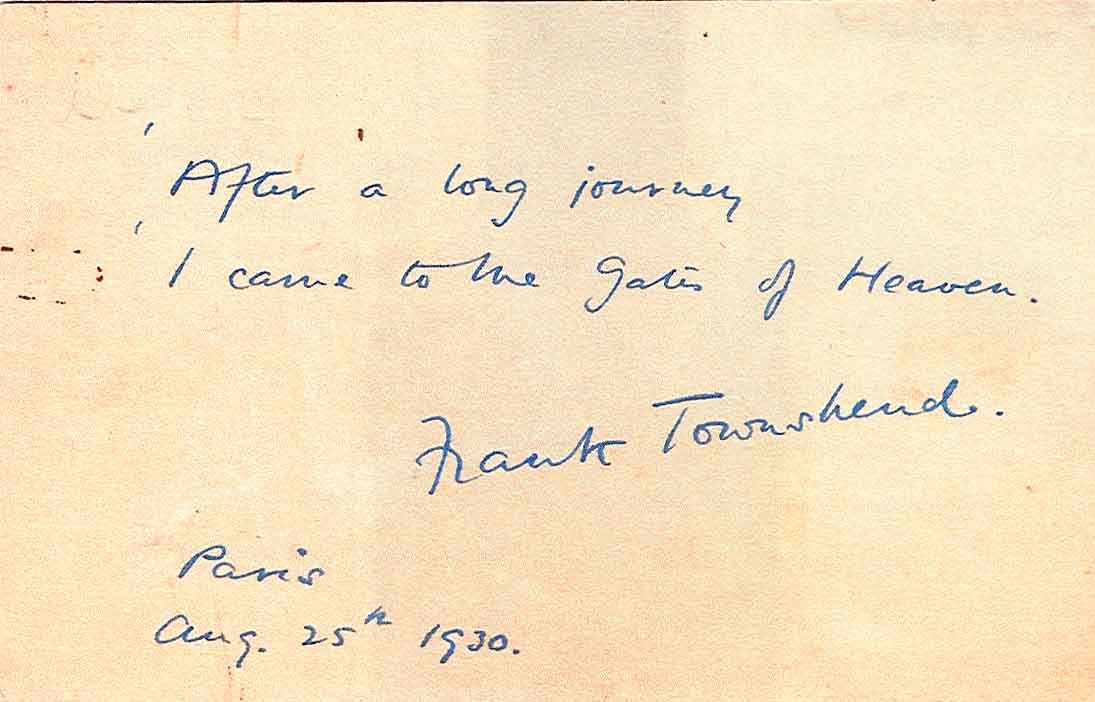 'After a long journey
'I came to the Gates of Heaven.
Frank Townshend.
Paris
Aug. 25th 1930.